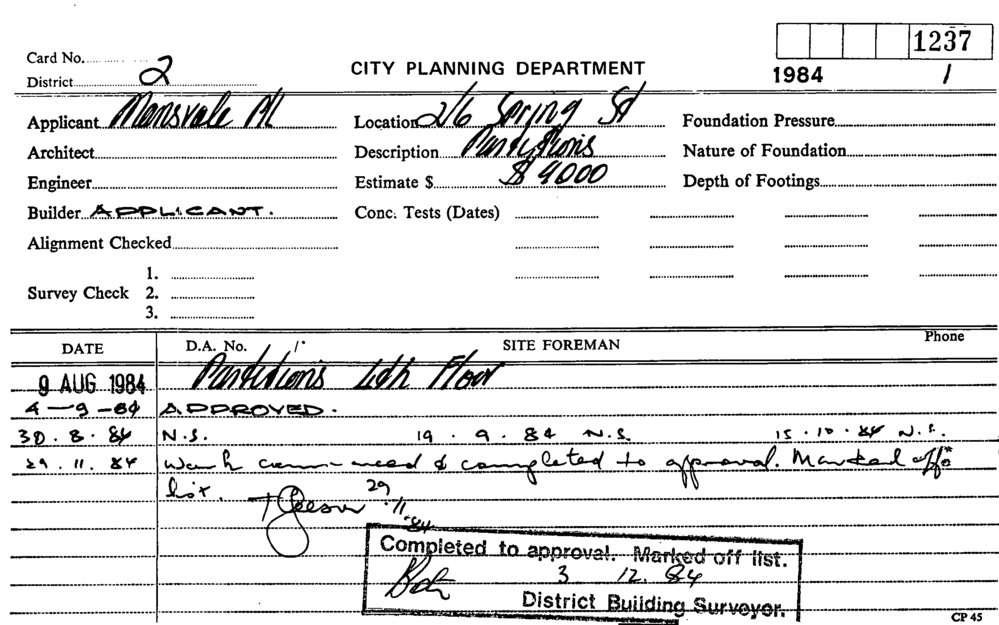 1237
Card No.
District 2
CITY PLANNING DEPARTMENT
1984 1
Applicant Mansvale P/L
Location 2/6 Spring St
Foundation Pressure
Architect
Description Partitions
Nature of Foundation
Engineer
Estimate $ $ 9000
Depth of Footings
Builder APPLICANT.
Conc. Tests (Dates)
Alignment Checked
1.
Survey Check 2.
3.
DATE D.A. No. SITE FOREMAN Phone
Partitions Floor
9 AUG 1984
4-9-84 APPROVED.
30.8.84 N.S. 19.9.84 N.S. 15.10.84 N.S.
29.11.84 Work commenced & completed to approval. Marked off
list. 29.11.84
Completed to approval. Marked off list.
3 12. 84
District Building Surveyor.
CP 45